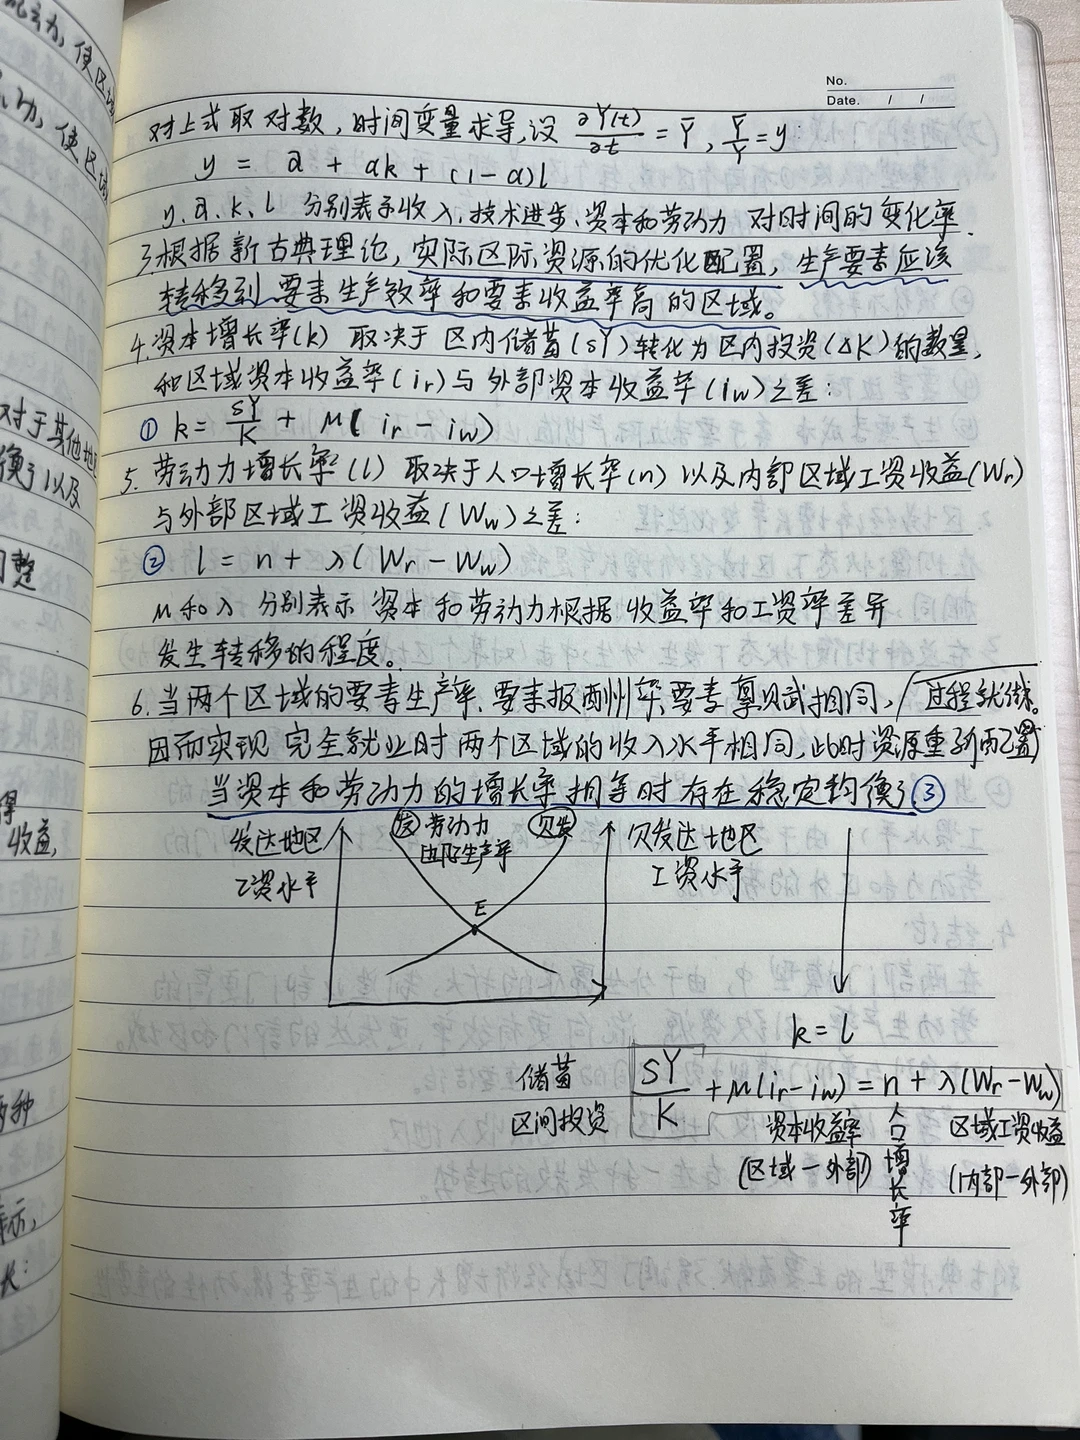 No.
Date. / /
对上式取对数,时间变量求导,设 ∂Y(t)/∂t = Ȳ, Ȳ/Y = y:
y = a + αk + (1-α)l
y、a、k、l 分别表示收入、技术进步、资本和劳动力 对时间的变化率.
3.根据新古典理论,实际区际资源的优化配置,生产要素应该
转移到要素生产效率和要素收益率高的区域。
4.资本增长率(k) 取决于 区内储蓄(sY)转化为区内投资(ΔK)的数量,
和区域资本收益率(ir)与外部资本收益率(iw)之差:
① k= sY/K + M( ir - iw)
5. 劳动力增长率(l) 取决于人口增长率(n) 以及内部区域工资收益(Wr)
与外部区域工资收益(Ww)之差:
② l = n + λ(Wr - Ww)
M和λ 分别表示 资本和劳动力根据 收益率和工资率差异
发生转移的程度。
6.当两个区域的要素生产率、要素报酬率、要素禀赋相同,
因而实现 完全就业时 两个区域的收入水平相同,此时资源重新配置
当资本和劳动力的增长率相等时存在稳定均衡 ③
发达地区
工资水平
劳动力
边际生产率
欠发达地区
工资水平
E
k = l
储蓄
区间投资
sY/K + M(ir-iw) = n + λ(Wr-Ww)
资本收益率
(区域-外部)
人口增长率
区域工资收益
(内部-外部)
对于其他地区
以及
收益,